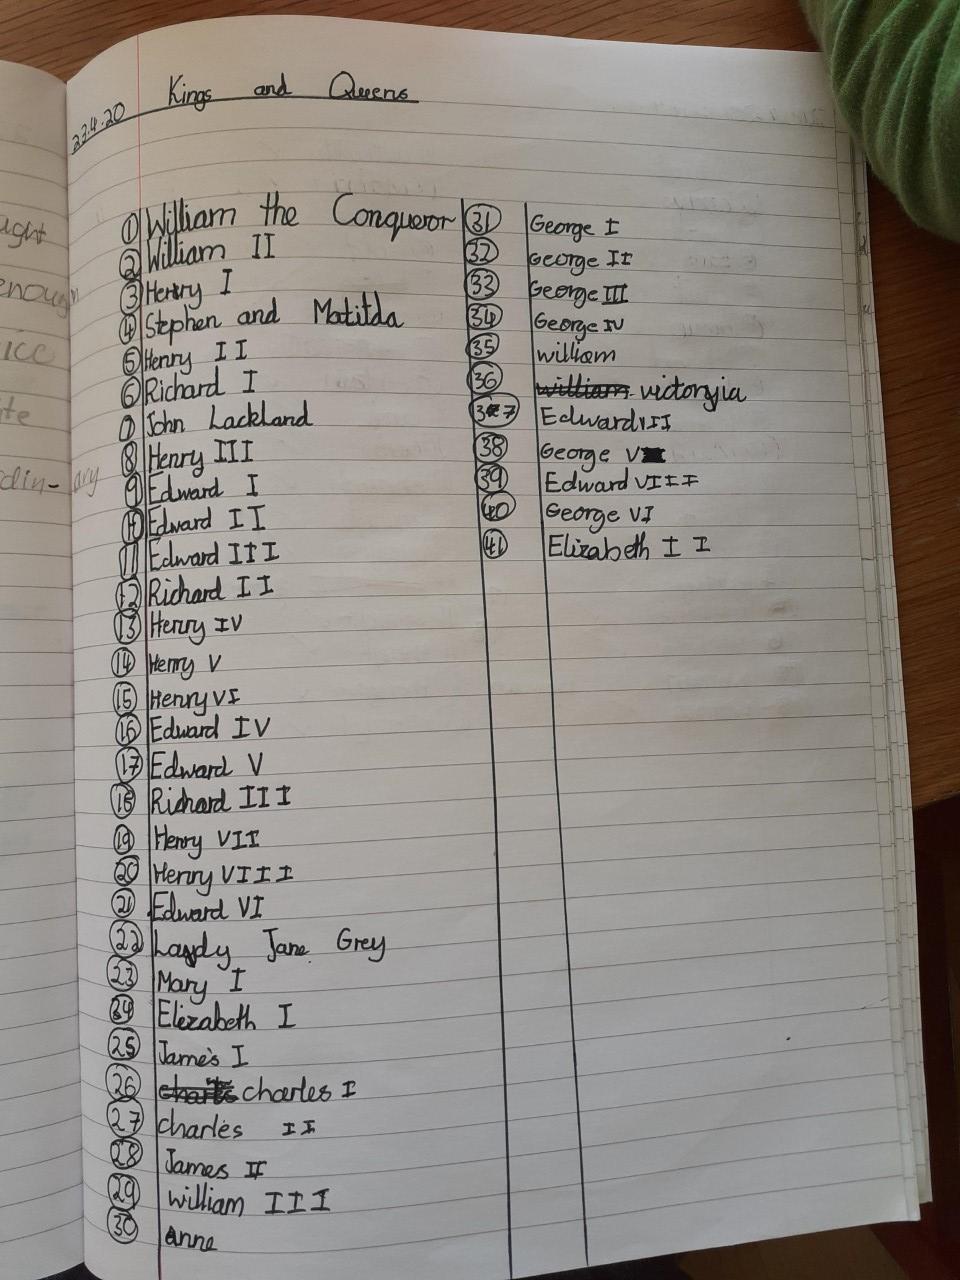 Kings and Queens
23.4.20
1 William the Conqueror
2 William II
3 Henry I
4 Stephen and Matilda
5 Henry II
6 Richard I
7 John Lackland
8 Henry III
9 Edward I
10 Edward II
11 Edward III
12 Richard II
13 Henry IV
14 Henry V
15 Henry VI
16 Edward IV
17 Edward V
18 Richard III
19 Henry VII
20 Henry VIII
21 Edward VI
22 Lady Jane Grey
23 Mary I
24 Elizabeth I
25 James I
26 charles I
27 charles II
28 James II
29 william III
30 Anne
31 George I
32 George II
33 George III
34 George IV
35 william
36 william victoryia
37 Edward VII
38 George V
39 Edward VIII
40 George VI
41 Elizabeth II